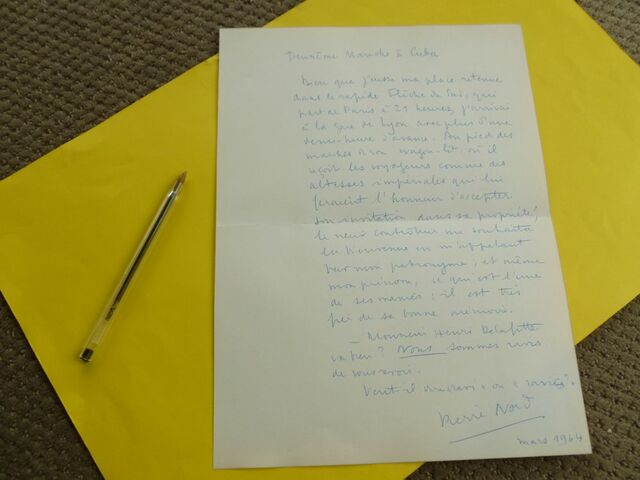 Deuxième Manche à Cuba
Bien que j'eusse ma place retenue
dans le rapide Flèche du Sud, qui
part de Paris à 21 heures, j'arrivai
à la gare de Lyon avec plus d'une
demi-heure d'avance. Au pied des
marches de son wagon-lit, où il
reçoit les voyageurs comme des
altesses impériales qui lui
feraient l'honneur d'accepter
son invitation dans sa propriété,
le contrôleur me souhaita
la bienvenue en m'appelant
par mon patronyme, et même
mon prénom, ce qui est l'une
de ses manies : il est très
fier de sa bonne mémoire.
— Monsieur Henri Delafitte
va bien ? Nous sommes ravis
de vous avoir.
Veut-il ou « ravis » ?
Pierre Nord
mars 1964